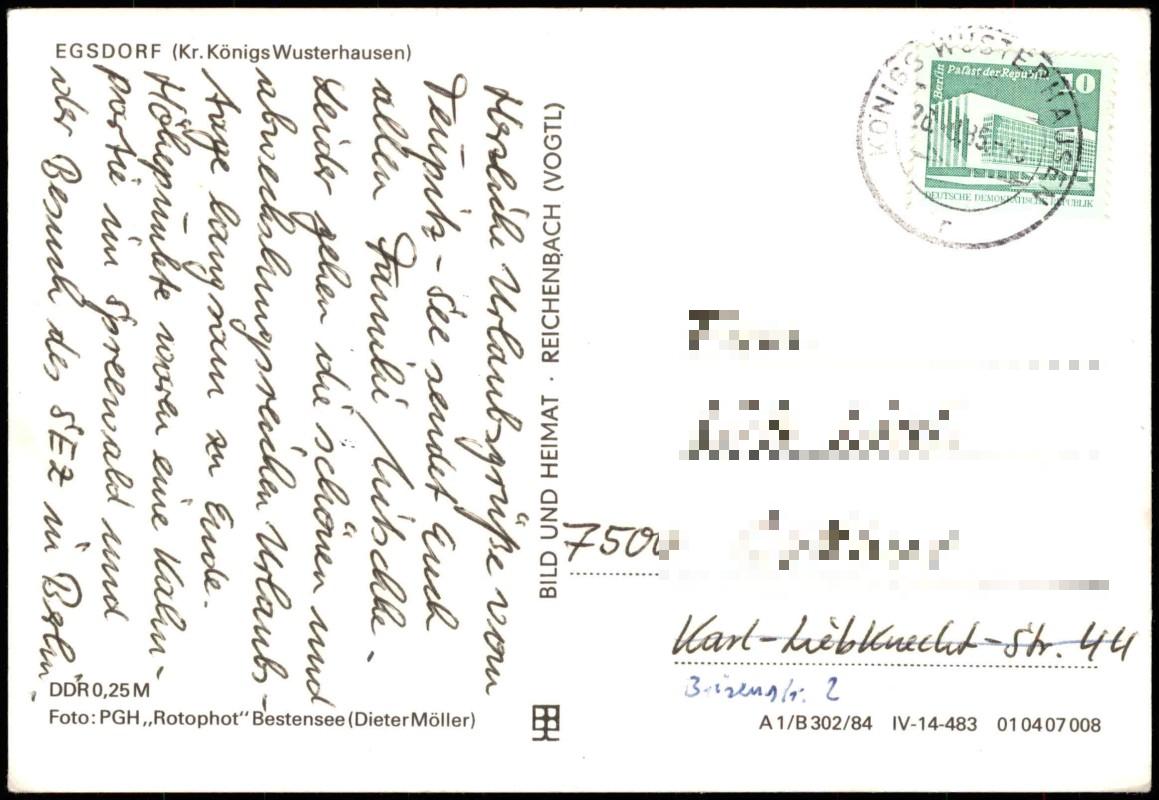 EGSDORF (Kr. Königs Wusterhausen)
Herzliche Urlaubsgrüße vom
Teupitz-See sendet Euch
allen Familie
Leider gehen die schönen und
abwechslungsreichen Urlaubs-
tage langsam zu Ende.
Höhepunkte waren eine Kahn-
partie im Spreewald und
der Besuch des SEZ in Berlin.
DDR 0,25 M
Foto: PGH „Rotophot" Bestensee (Dieter Möller)
BILD UND HEIMAT · REICHENBACH (VOGTL)
KÖNIGS WUSTERHAUSEN
Berlin
Palast der Republik
10
DEUTSCHE DEMOKRATISCHE REPUBLIK
750
Karl-Liebknecht-Str. 44
2
A 1/B 302/84 IV-14-483 01 04 07 008